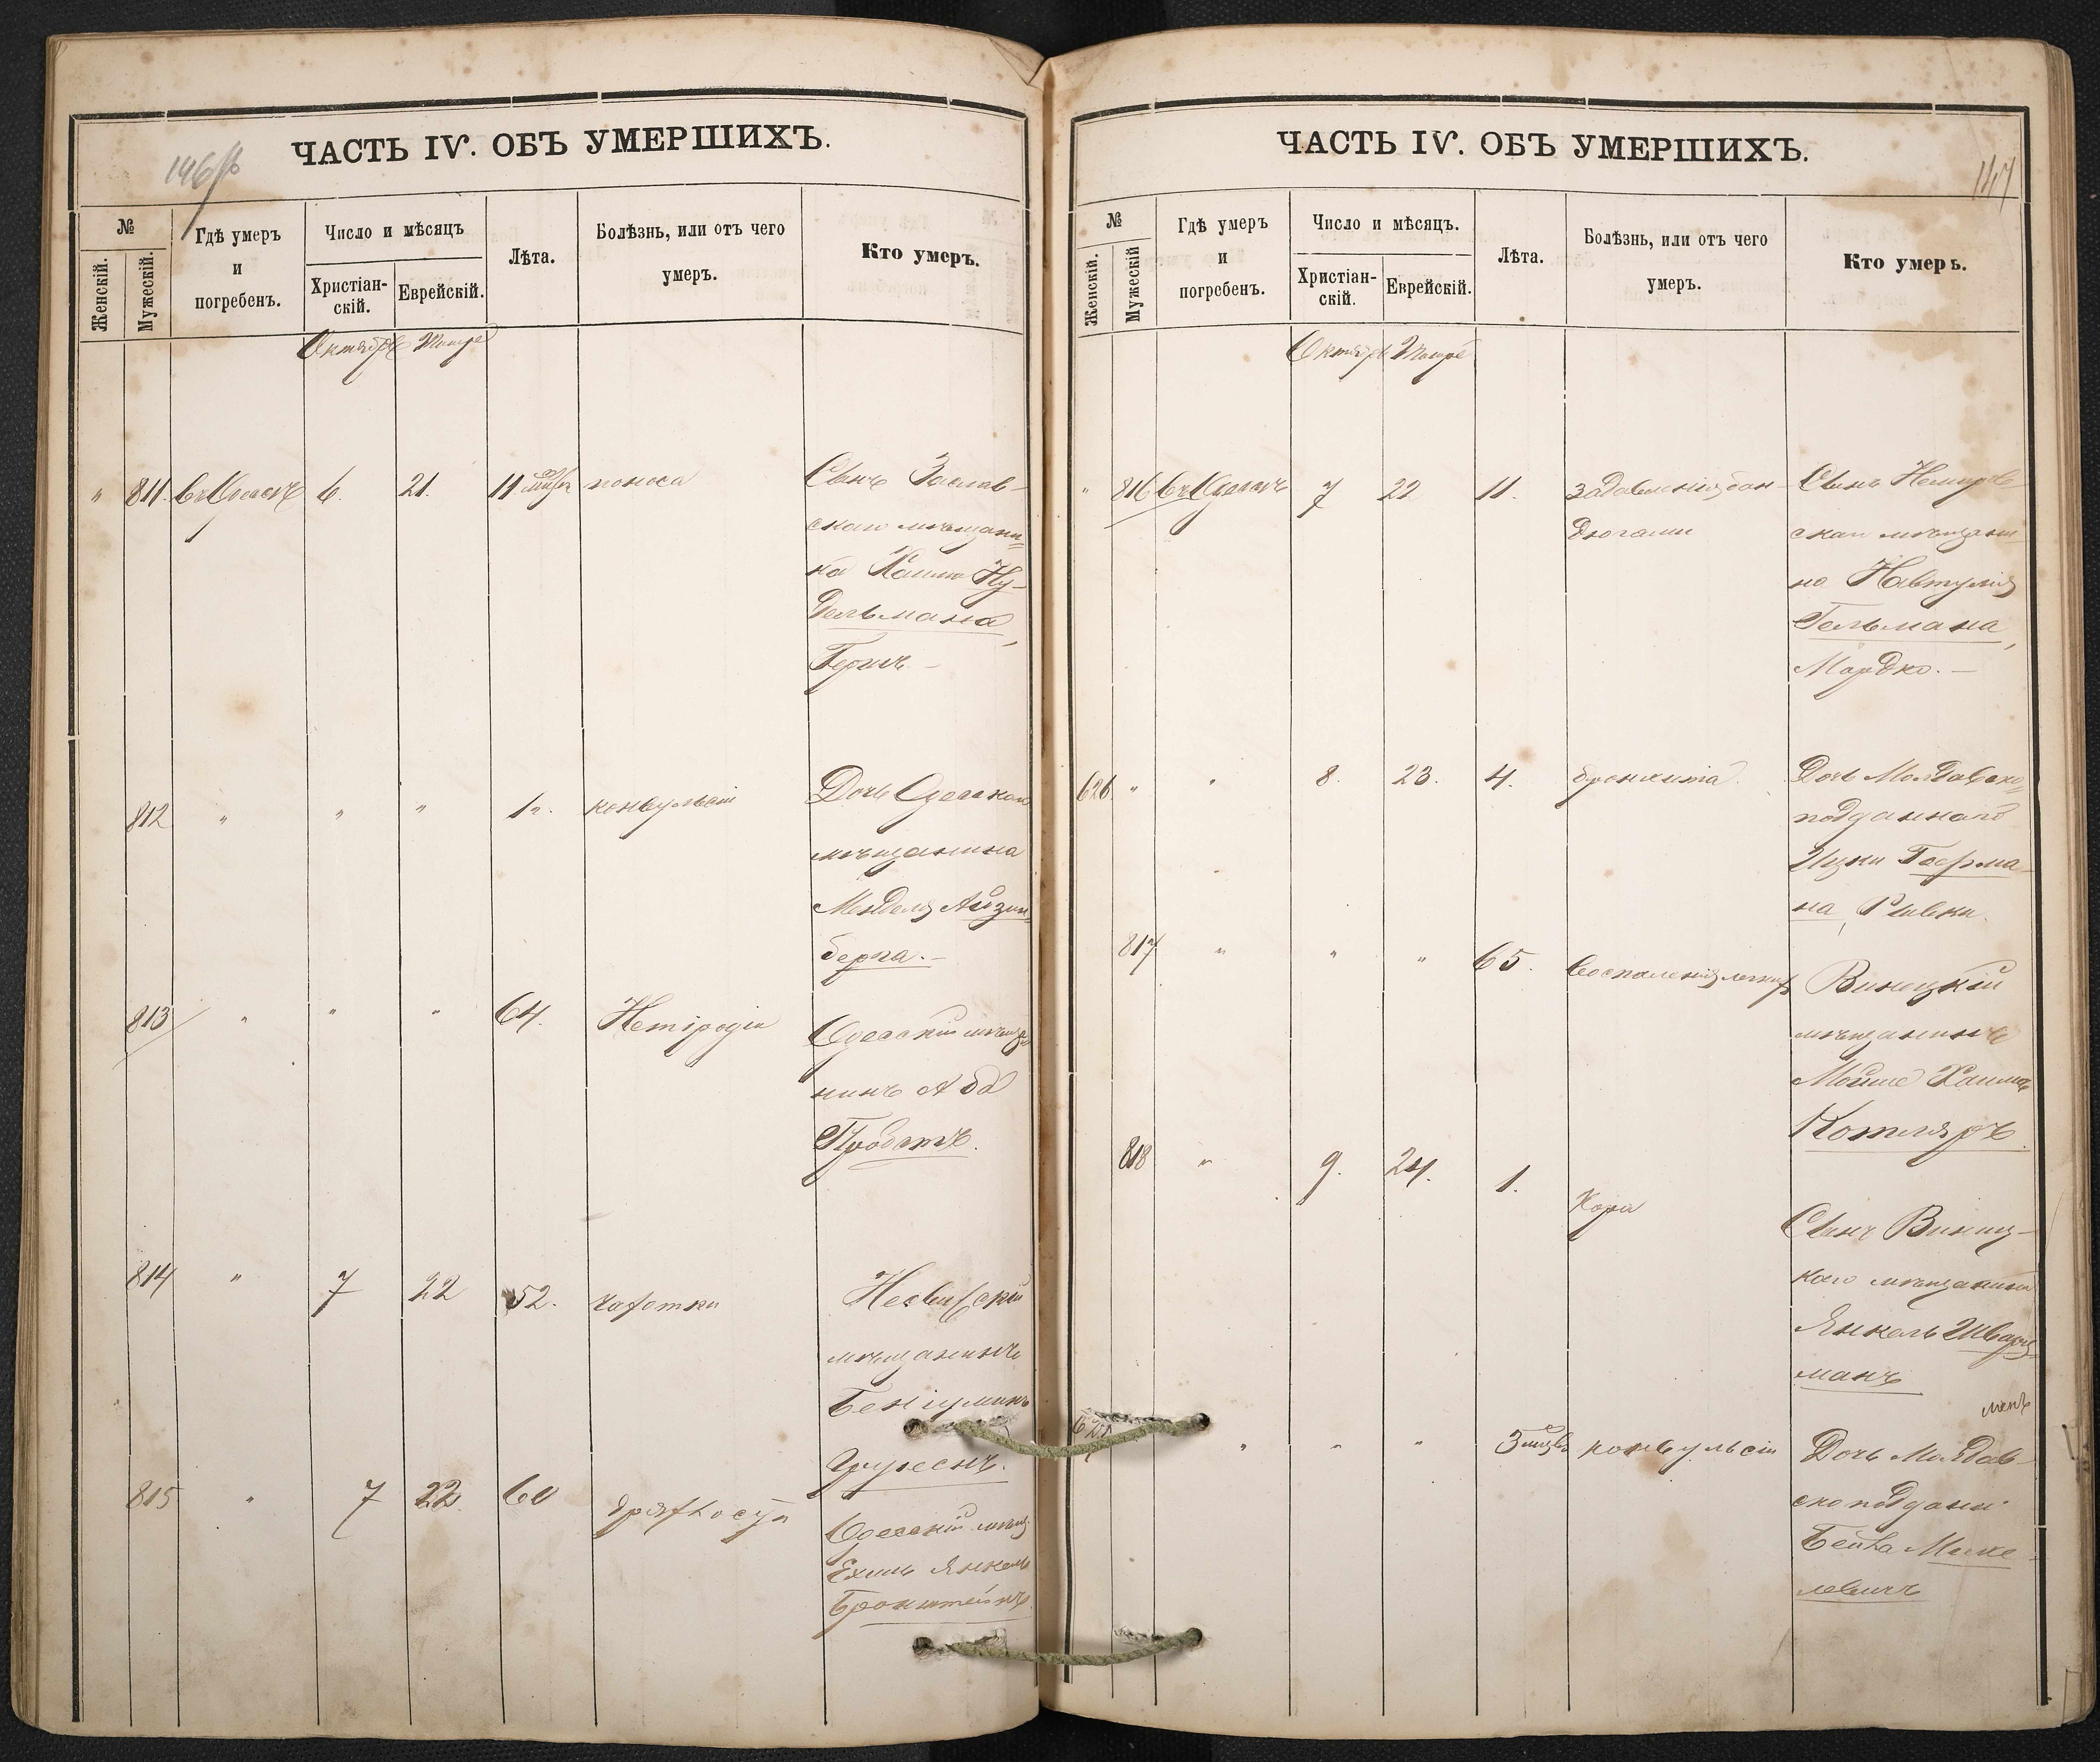 146об
ЧАСТЬ IV. ОБЪ УМЕРШИХЪ.
№
Женскій.
Мужескій.
Гдѣ умеръ
и
погребенъ.
Число и мѣсяцъ
Христіан-
скій.
Еврейскій.
Лѣта.
Болѣзнь, или отъ чего
умеръ.
Кто умеръ.
Октябрь Тишре
" 811. въ Одессѣ 6. 21. 11 мѣсц поноса Сынъ Заслав-
скаго мѣщани-
на Хаима Ну-
дельмана,
Герш. –
812 " " " 1 г. конвульсіи Дочь Одесскаго
мѣщанина
Менделя Айзин-
берга. –
813 " " " 64. Одесскій мѣща-
нинъ Аба
814 " 7 22 52. чахотки
мѣщанинъ
Беніуминъ
815 " 7 22. 60 Одесскій мѣщ.
Ехиль Янкель
Бронштейнъ
147
ЧАСТЬ IV. ОБЪ УМЕРШИХЪ.
№
Женскій.
Мужескій
Гдѣ умеръ
и
погребенъ.
Число и мѣсяцъ.
Христіан-
скій.
Еврейскій.
Лѣта.
Болѣзнь, или отъ чего
умеръ.
Кто умеръ.
Октябрь Тишре
" 816 въ Одессѣ 7 22 11. задавленія бан- Сынъ Немиров-
дюгами скаго мѣщани-
на Нафтулія
Гельмана,
Мордко. –
626 " " 8. 23. 4. бронхита. Дочь Молдавско-
подданнаго
Ицки Гофма-
на, Ривки.
817 " " " 65. воспаленія легкихъ Виницкій
мѣщанинъ
Мойше Хаимъ
Котляръ.
818 " 9. 24. 1. Кора Сынъ Виниц-
каго мѣщанина
Янкель Шварц-
манъ
627 " " " 3 мѣсц конвульсіи Дочь Молдав-
ско поддан.
Бейла Мике-
левичъ